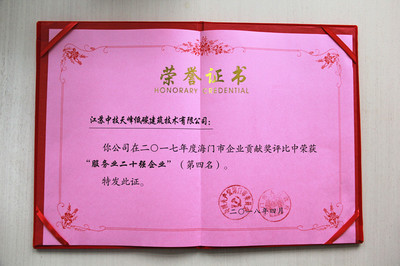 荣誉证书
HONORARY CREDENTIAL
江苏中技天峰低碳建筑技术有限公司：
你公司在二〇一七年度海门市企业贡献奖评比中荣获
“服务业二十强企业”（第四名）。
特发此证。
二〇一八年四月